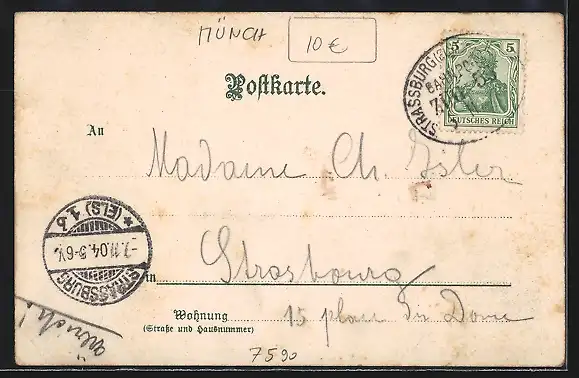 MÜNCH
10 €
5 5
DEUTSCHES REICH
STRASSBURG
BAHNPOST
ZUG
Postkarte.
An
Madame Ch. Ister
STRASSBURG
* (ELS) 1.b
-7.11.04.5-6V.
in Strasbourg
Wohnung 15 place du Dome
(Straße und Hausnummer)
7590